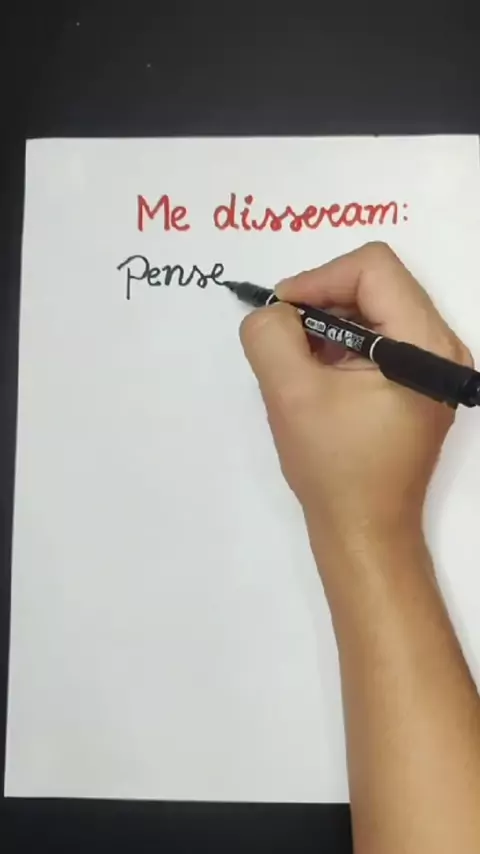 Me disseram:
Pense